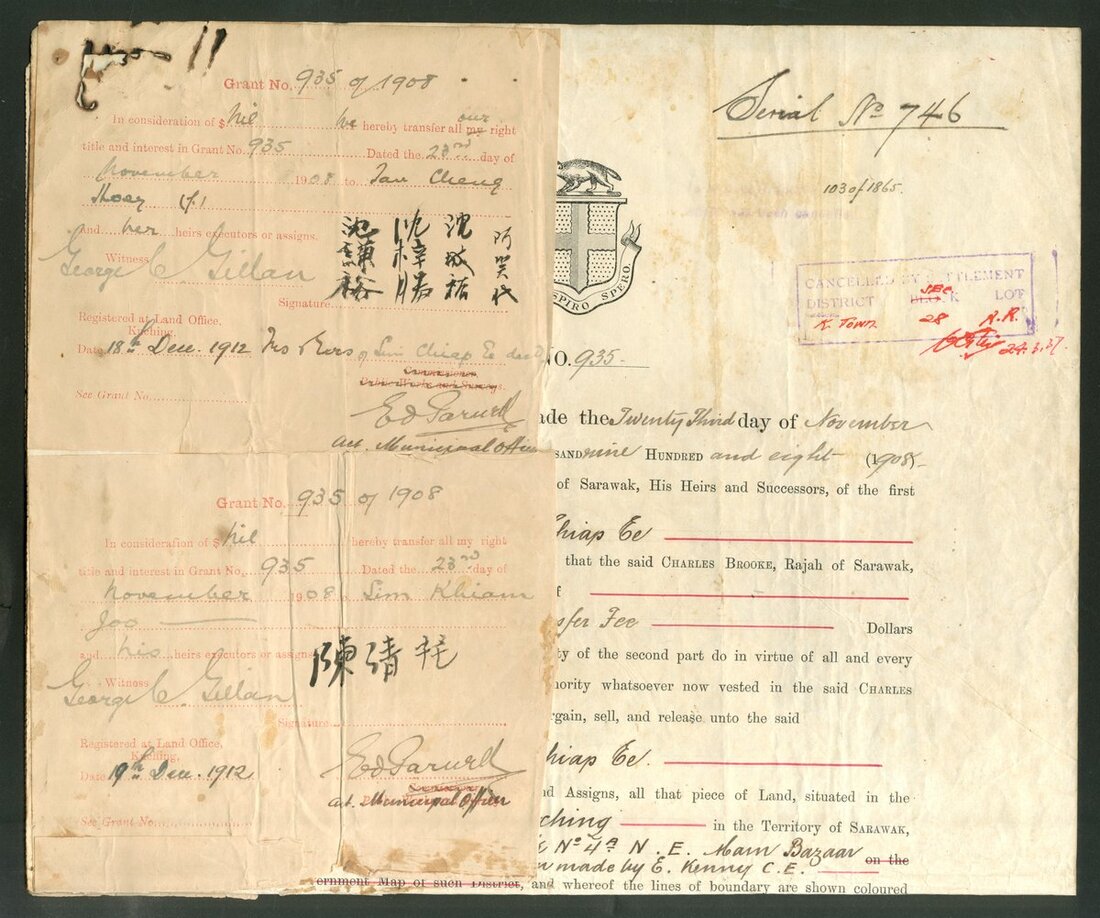 Grant No. 935 of 1908
In consideration of $ Nil we hereby transfer all my our right
title and interest in Grant No. 935 Dated the 23rd day of
November 1908 to Tan Cheng
Hoay (f)
and her heirs executors or assigns.
Witness
George C Gillan
沈謙裕
沈梓勝
沈成祐
Signature
Registered at Land Office,
Kuching,
Date 18th Dec. 1912 Trs & Exors of Sim Chiap Ee decd
See Grant No.
Ed Parnell
act. Municipal Officer
Grant No. 935 of 1908
In consideration of $ Nil hereby transfer all my right
title and interest in Grant No. 935 Dated the 23rd day of
November 1908 Sim Khiam
Joo
and his heirs executors or assigns
陳清
Witness
George C. Gillan
Signature
Registered at Land Office,
Kuching,
Date 19th Dec. 1912
See Grant No.
Ed Parnell
act. Municipal Officer
Serial No 746
103 of 1865.
SPIRO SPERO.
CANCELLED BY SETTLEMENT
DISTRICT SEC. LOT
K. TOWN 28 A.R.
24.3.37.
NO. 935.
ade the Twenty Third day of November
SAND nine HUNDRED and eight (1908)
of Sarawak, His Heirs and Successors, of the first
Chiap Ee
that the said CHARLES BROOKE, Rajah of Sarawak,
f
sfer Fee Dollars
ty of the second part do in virtue of all and every
hority whatsoever now vested in the said CHARLES
rgain, sell, and release unto the said
hiap Ee.
nd Assigns, all that piece of Land, situated in the
ching in the Territory of SARAWAK,
No 4a N. E. Main Bazaar on the
n made by E. Kenny C.E.
ernment Map of such District, and whereof the lines of boundary are shown coloured